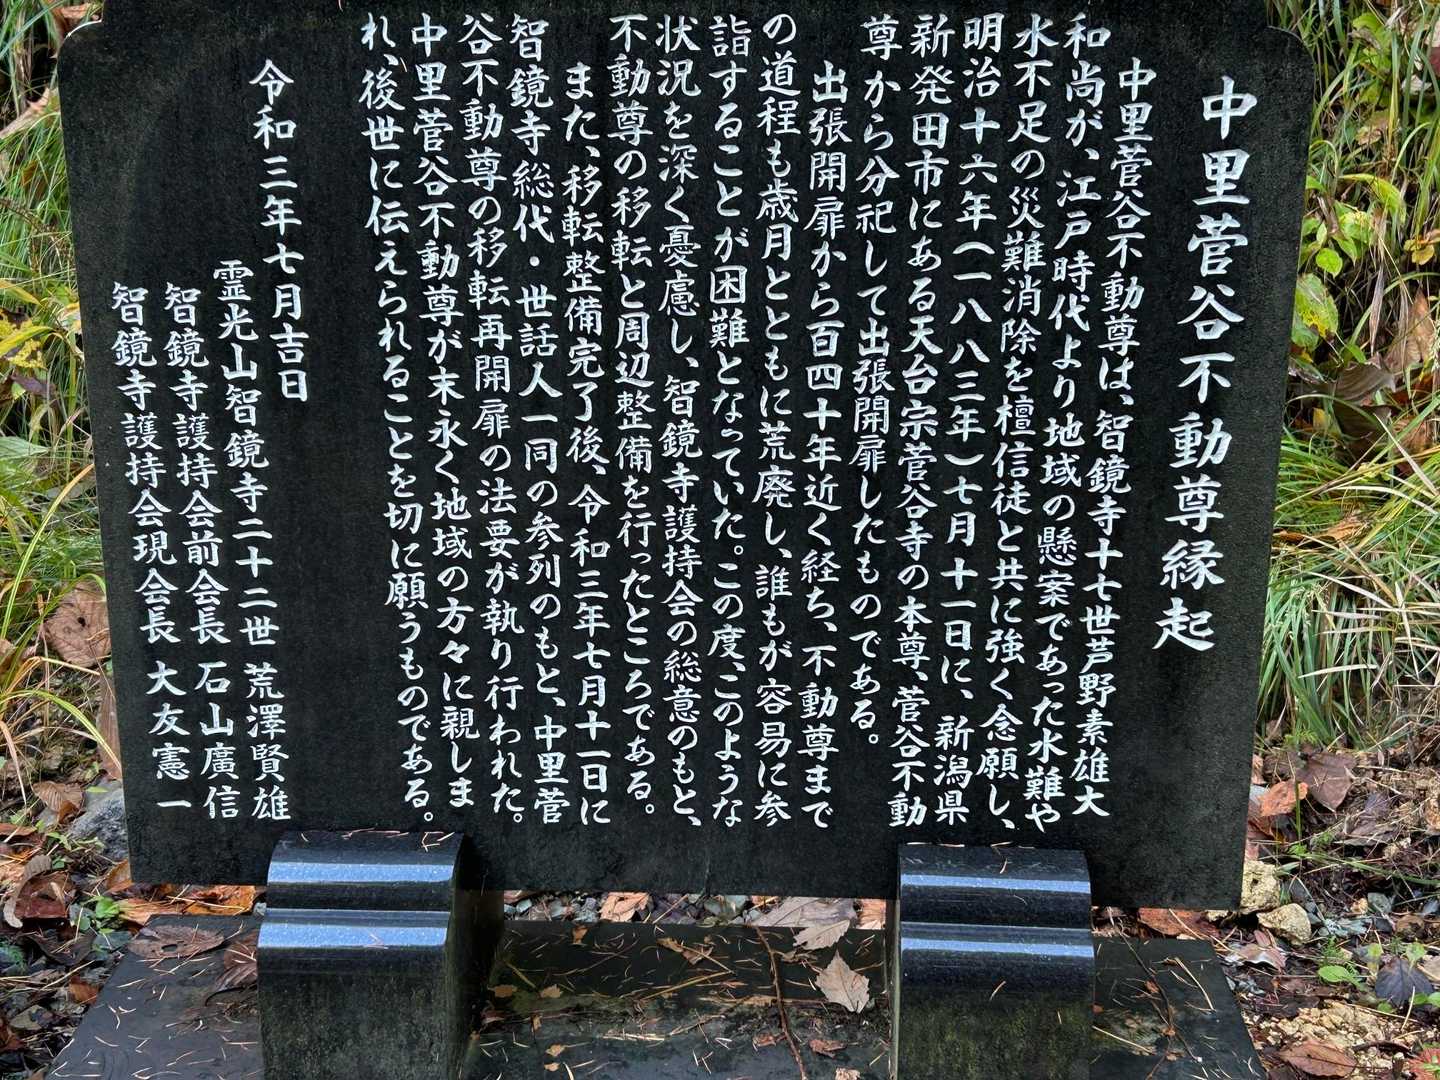 中里菅谷不動尊縁起
中里菅谷不動尊は、智鏡寺十七世芦野素雄大
和尚が、江戸時代より地域の懸案であった水難や
水不足の災難消除を檀信徒と共に強く念願し、
明治十六年(一八八三年)七月十一日に、新潟県
新発田市にある天台宗菅谷寺の本尊、菅谷不動
尊から分祀して出張開扉したものである。
出張開扉から百四十年近く経ち、不動尊まで
の道程も歳月とともに荒廃し、誰もが容易に参
詣することが困難となっていた。この度、このような
状況を深く憂慮し、智鏡寺護持会の総意のもと、
不動尊の移転と周辺整備を行ったところである。
また、移転整備完了後、令和三年七月十一日に
智鏡寺総代・世話人一同の参列のもと、中里菅
谷不動尊の移転再開扉の法要が執り行われた。
中里菅谷不動尊が末永く地域の方々に親しま
れ、後世に伝えられることを切に願うものである。
令和三年七月吉日
霊光山智鏡寺二十二世 荒澤賢雄
智鏡寺護持会前会長 石山廣信
智鏡寺護持会現会長 大友憲一